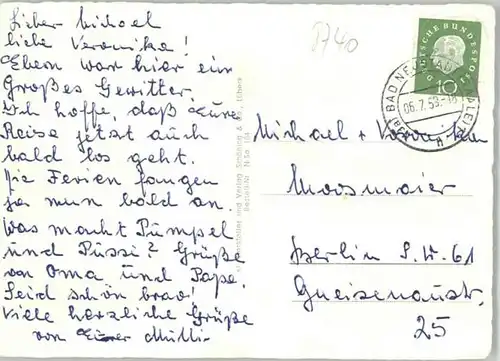 Lieber Michael
liebe Veronika!
Eben war hier ein
Großes Gewitter.
Ich hoffe, daß Eure
Reise jetzt auch
bald los geht.
Die Ferien fangen
ja nun bald an.
Was macht Pumpel
und Pussi? Grüße
von Oma und Papa.
Seid schön brav!
Viele herzliche Grüße
von Eurer Mutti.
A40
DEUTSCHE BUNDESPOST
10
BAD NEU
06.7.59
a
und Verlag Schöning & Co., Lübeck
Bestell-Nr.
Michael + Veronika
Moosmaier
Berlin S.W. 61
Gneisenaustr.
25